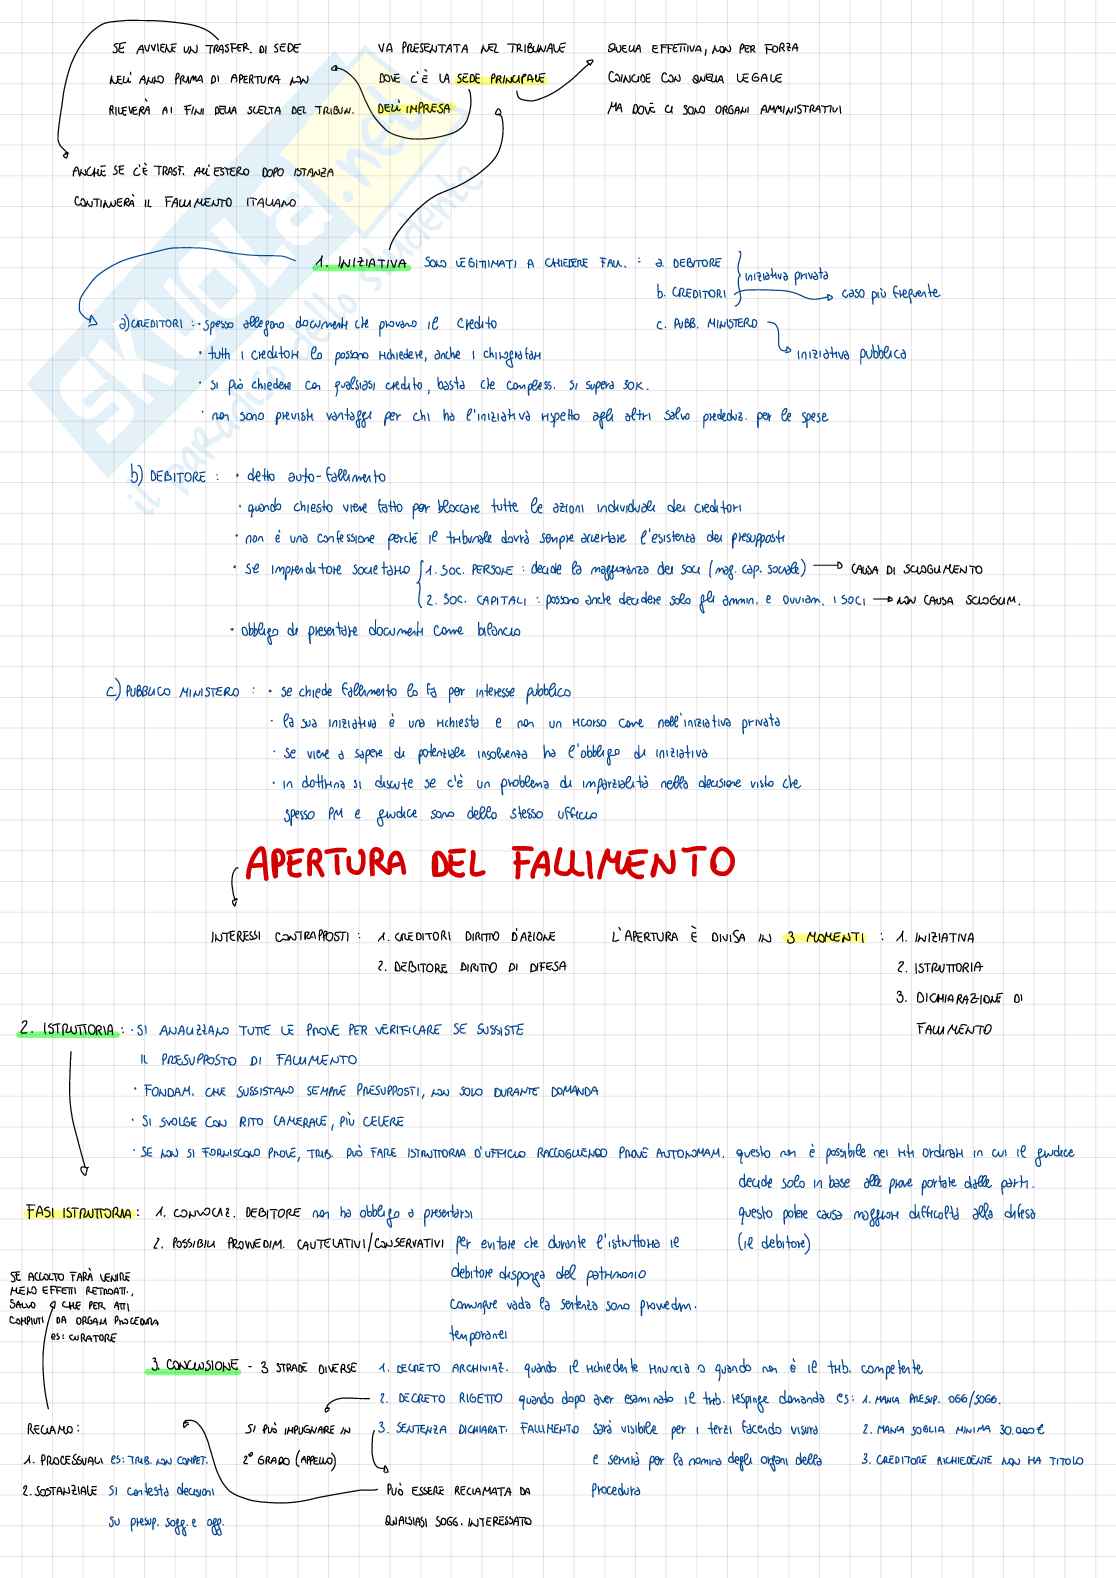 SE AVVIENE UN TRASFER. DI SEDE
NELL'ANNO PRIMA DI APERTURA NON
RILEVERÀ AI FINI DELLA SCELTA DEL TRIBUN.
VA PRESENTATA NEL TRIBUNALE
DOVE C'È LA SEDE PRINCIPALE
DELL'IMPRESA
QUELLA EFFETTIVA, NON PER FORZA
COINCIDE CON QUELLA LEGALE
MA DOVE CI SONO ORGANI AMMINISTRATIVI
ANCHE SE C'È TRASF. ALL'ESTERO DOPO ISTANZA
CONTINUERÀ IL FALLIMENTO ITALIANO
SKUOLA.net
il paradiso dello studente
1. INIZIATIVA SOLO LEGITTIMATI A CHIEDERE FALL. : a. DEBITORE
b. CREDITORI
iniziativa privata
caso più frequente
c. PUBB. MINISTERO
iniziativa pubblica
a) CREDITORI : · spesso allegano documenti che provano il credito
· tutti i creditori lo possono richiedere, anche i chirografari
· si può chiedere con qualsiasi credito, basta che compless. si supera 30K.
· non sono previsti vantaggi per chi ha l'iniziativa rispetto agli altri salvo prededuz. per le spese
b) DEBITORE : · detto auto-fallimento
· quando chiesto viene fatto per bloccare tutte le azioni individuali dei creditori
· non è una confessione perché il tribunale dovrà sempre accertare l'esistenza dei presupposti
· se imprenditore societario 1. SOC. PERSONE : decide la maggioranza dei soci (mag. cap. sociale) → CAUSA DI SCIOGLIMENTO
2. SOC. CAPITALI : possono anche decidere solo gli ammin. e ovviam. I SOCI → NON CAUSA SCIOGLIM.
· obbligo di presentare documenti come bilancio
c) PUBBLICO MINISTERO : · se chiede fallimento lo fa per interesse pubblico
· la sua iniziativa è una richiesta e non un ricorso come nell'iniziativa privata
· se viene a sapere di potenziale insolvenza ha l'obbligo di iniziativa
· in dottrina si discute se c'è un problema di imparzialità nella decisione visto che
spesso PM e giudice sono dello stesso ufficio
APERTURA DEL FALLIMENTO
INTERESSI CONTRAPPOSTI : 1. CREDITORI DIRITTO D'AZIONE
2. DEBITORE DIRITTO DI DIFESA
L'APERTURA È DIVISA IN 3 MOMENTI : 1. INIZIATIVA
2. ISTRUTTORIA
3. DICHIARAZIONE DI
FALLIMENTO
2. ISTRUTTORIA : · SI ANALIZZANO TUTTE LE PROVE PER VERIFICARE SE SUSSISTE
IL PRESUPPOSTO DI FALLIMENTO
· FONDAM. CHE SUSSISTANO SEMPRE PRESUPPOSTI, NON SOLO DURANTE DOMANDA
· SI SVOLGE CON RITO CAMERALE, PIÙ CELERE
· SE NON SI FORNISCONO PROVE, TRIB. PUÒ FARE ISTRUTTORIA D'UFFICIO RACCOGLIENDO PROVE AUTONOMAM. questo non è possibile nei riti ordinari in cui il giudice
decide solo in base alle prove portate dalle parti.
questo potere causa maggiori difficoltà alla difesa
(il debitore)
FASI ISTRUTTORIA : 1. CONVOCAZ. DEBITORE non ha obbligo a presentarsi
2. POSSIBILI PROVVEDIM. CAUTELATIVI/CONSERVATIVI per evitare che durante l'istruttoria il
debitore disponga del patrimonio
Comunque vada la sentenza sono provvedim.
temporanei
SE ACCOLTO FARÀ VENIRE
MENO EFFETTI RETROATT.,
SALVO CHE PER ATTI
COMPIUTI DA ORGANI PROCEDURA
es: CURATORE
3. CONCLUSIONE - 3 STRADE DIVERSE
1. DECRETO ARCHIVIAZ. quando il richiedente rinuncia o quando non è il trib. competente
2. DECRETO RIGETTO quando dopo aver esaminato il trib. respinge domanda es: 1. MANCA PRESUP. OGG/SOGG.
2. MANCA SOGLIA MINIMA 30.000€
3. CREDITORE RICHIEDENTE NON HA TITOLO
3. SENTENZA DICHIARAT. FALLIMENTO sarà visibile per i terzi facendo visura
e servirà per la nomina degli organi della
Procedura
SI PUÒ IMPUGNARE IN
2° GRADO (APPELLO)
PUÒ ESSERE RECLAMATA DA
QUALSIASI SOGG. INTERESSATO
RECLAMO :
1. PROCESSUALI es: TRIB. NON COMPET.
2. SOSTANZIALE si contesta decisioni
su presup. sogg. e ogg.